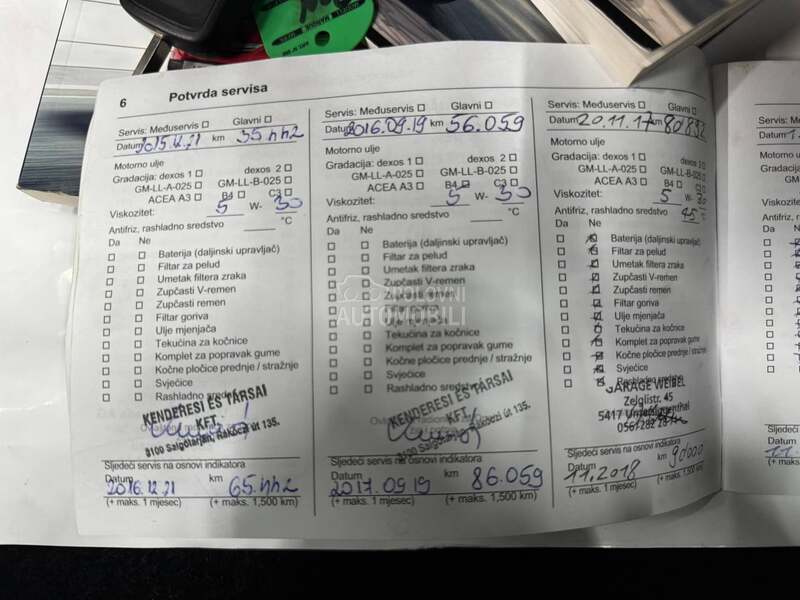 6 Potvrda servisa
Servis: Međuservis Glavni
Datum 2015.12.21 km
Motorno ulje
Gradacija: dexos 1 dexos 2
GM-LL-A-025 GM-LL-B-025
ACEA A3 B4 C3
Viskozitet: 5 W- 30
Antifriz, rashladno sredstvo °C
Da Ne
Baterija (daljinski upravljač)
Filtar za pelud
Umetak filtera zraka
Zupčasti V-remen
Zupčasti remen
Filtar goriva
Ulje mjenjača
Tekućina za kočnice
Komplet za popravak gume
Kočne pločice prednje / stražnje
Svjećice
Rashladno sredstvo
KENDERESI ÉS TÁRSAI
KFT.
3100 Salgótarján, Rákóczi út 135.
Sljedeći servis na osnovi indikatora
Datum km
2016.12.21
(+ maks. 1 mjesec) (+ maks. 1,500 km)
Servis: Međuservis Glavni
Datum 2016.09.19 km 56.059
Motorno ulje
Gradacija: dexos 1 dexos 2
GM-LL-A-025 GM-LL-B-025
ACEA A3 B4 C3
Viskozitet: 5 W- 30
Antifriz, rashladno sredstvo °C
Da Ne
Baterija (daljinski upravljač)
Filtar za pelud
Umetak filtera zraka
Zupčasti V-remen
Zupčasti remen
Filtar goriva
Ulje mjenjača
Tekućina za kočnice
Komplet za popravak gume
Kočne pločice prednje / stražnje
Svjećice
Rashladno sredstvo
KENDERESI ÉS TÁRSAI
KFT.
3100 Salgótarján, Rákóczi út 135.
Sljedeći servis na osnovi indikatora
Datum km
2017.09.19 86.059
(+ maks. 1 mjesec) (+ maks. 1,500 km)
Servis: Međuservis Glavni
Datum 20.11.17 km
Motorno ulje
Gradacija: dexos 1 dexos 2
GM-LL-A-025 GM-LL-B-025
ACEA A3 B4 C3
Viskozitet: 5 W- 30
Antifriz, rashladno sredstvo 45 °C
Da Ne
Baterija (daljinski upravljač)
Filtar za pelud
Umetak filtera zraka
Zupčasti V-remen
Zupčasti remen
Filtar goriva
Ulje mjenjača
Tekućina za kočnice
Komplet za popravak gume
Kočne pločice prednje / stražnje
Svjećice
Rashladno sredstvo
GARAGE WEIBEL
Zelglistr. 45
5417 Untersiggenthal
Sljedeći servis na osnovi indikatora
Datum km
11.2018
(+ maks. 1 mjesec) (+ maks. 1,500 km)
POLOVNI
AUTOMOBILI